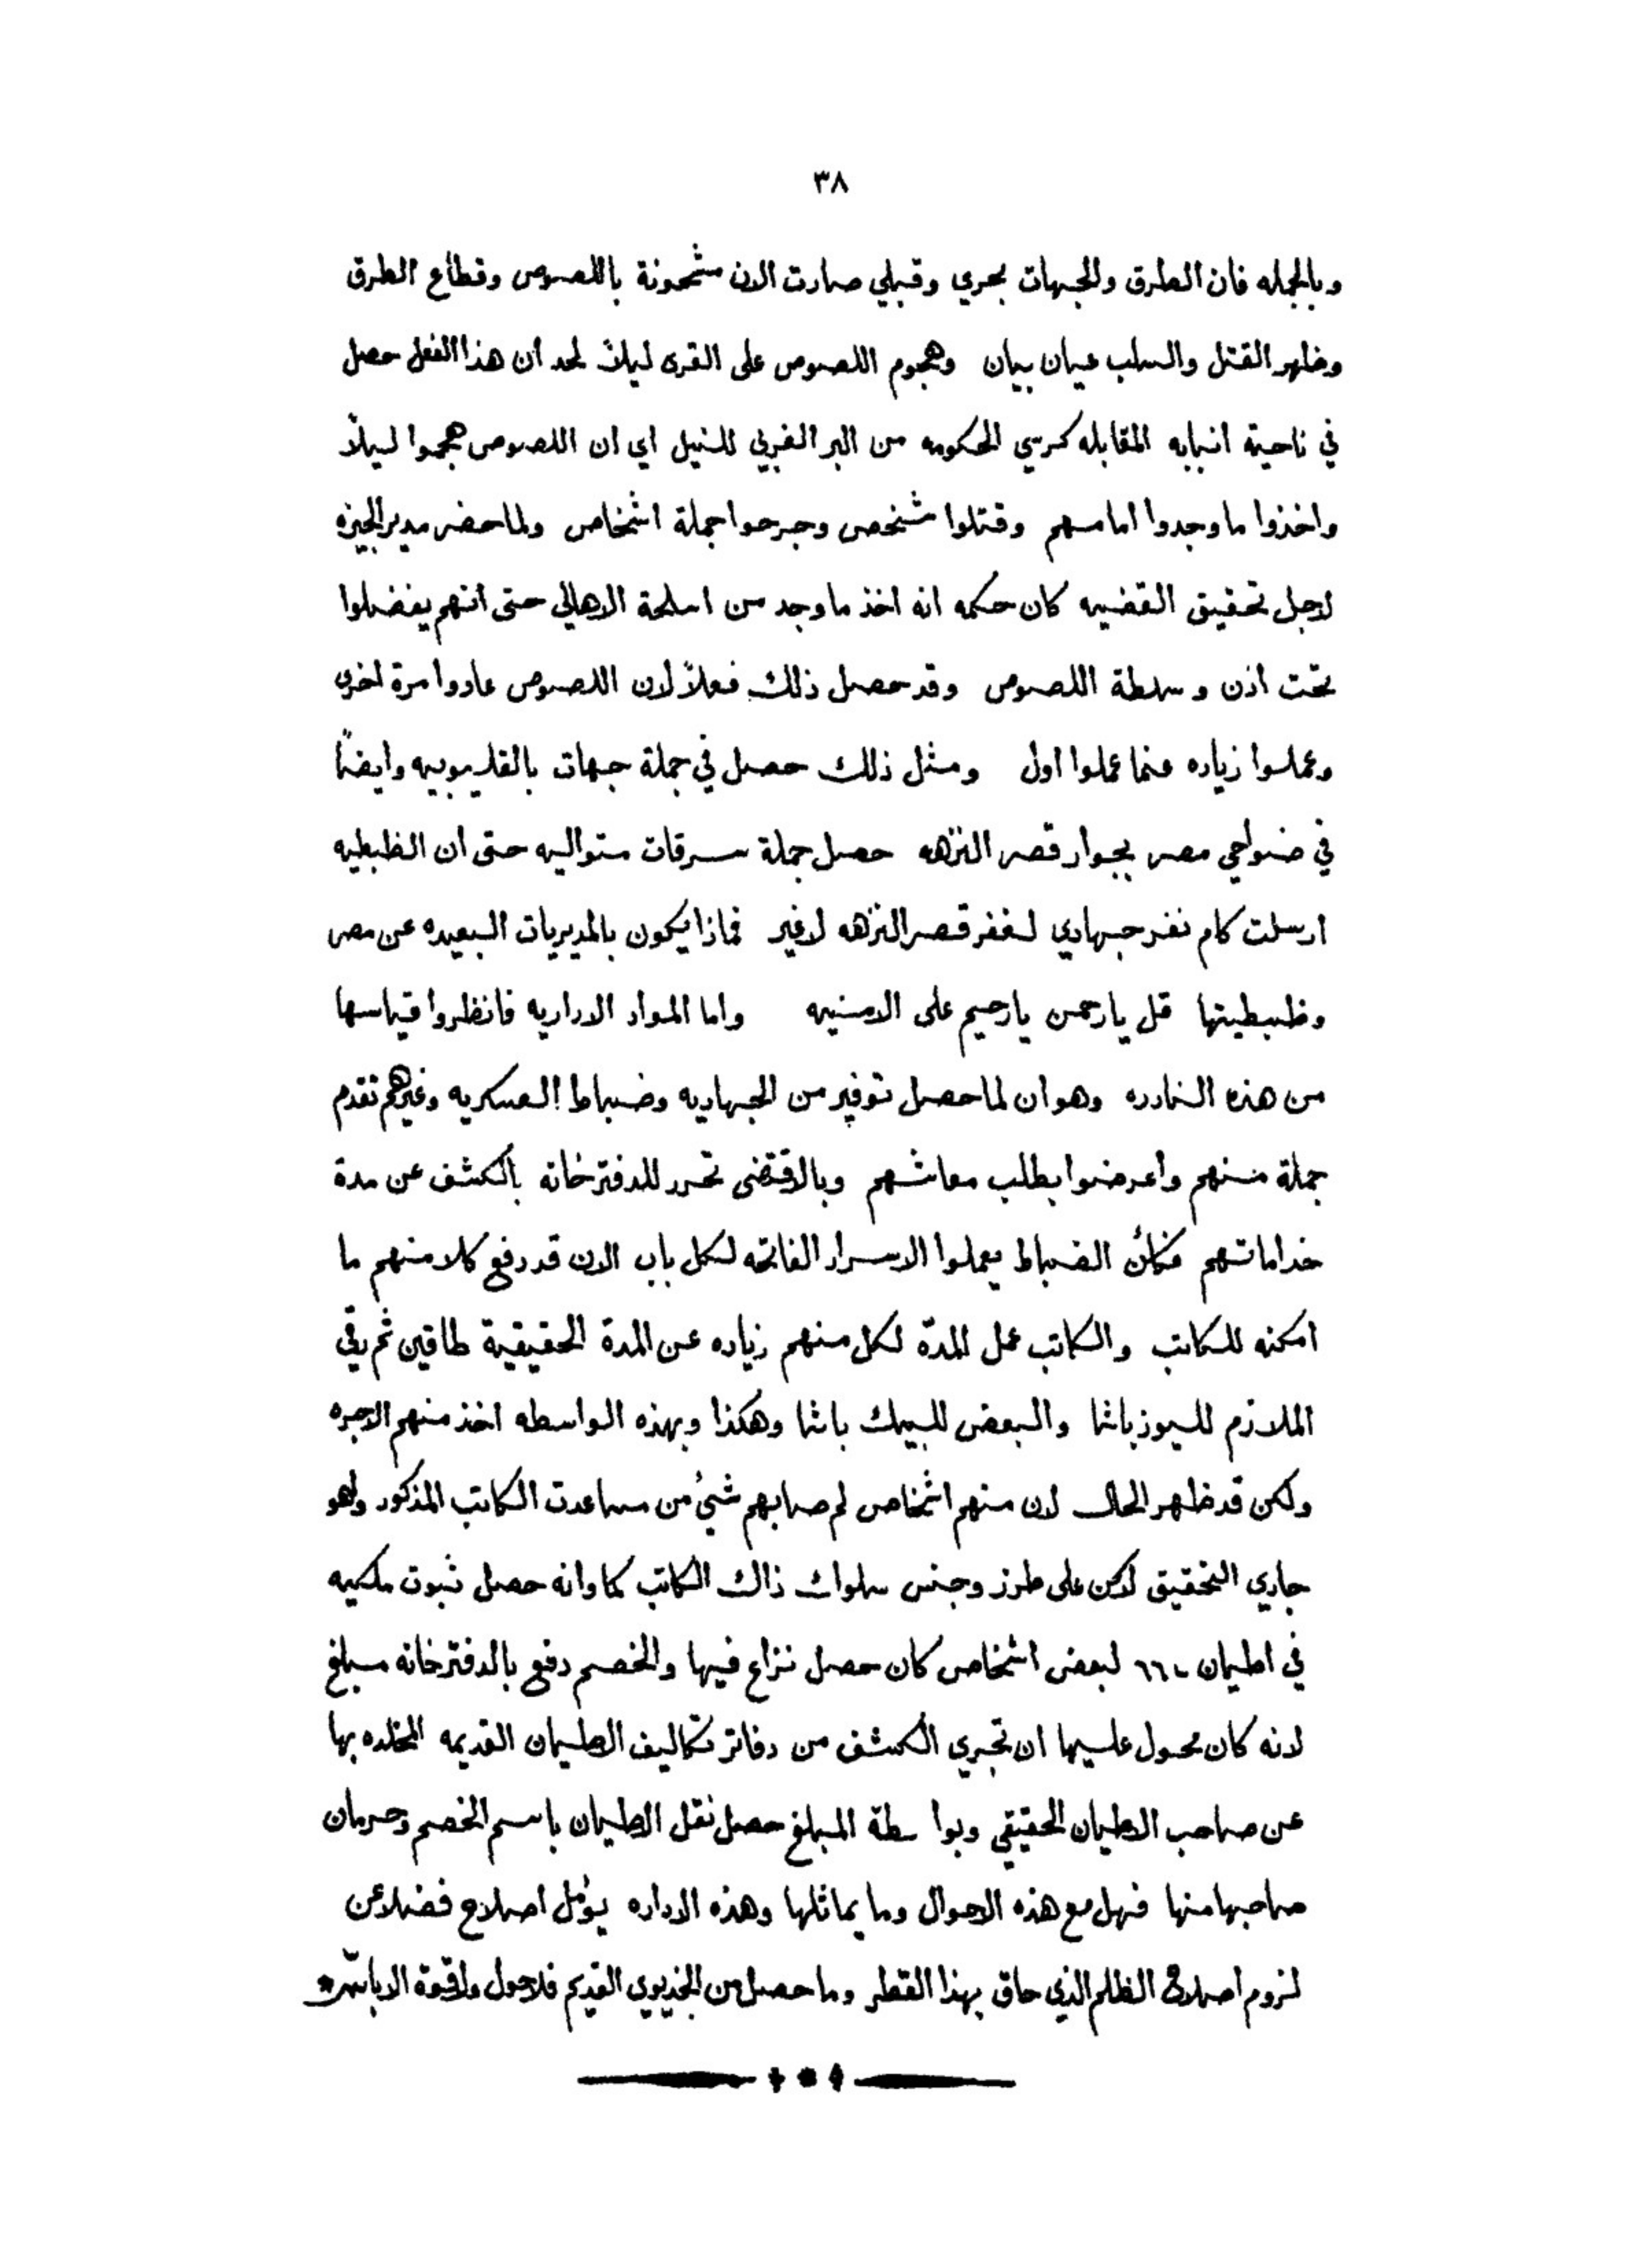 ٣٨
وبالجمله فان الطرق والجهات بحري وقبلي صارت الان مشحونة باللصوص وقطاع الطرق
وظهر القتل والسلب عيان بيان وهجوم اللصوص على القرى ليلاً لحد ان هذا الفعل حصل
في ناحية انبابه المقابله كرسي الحكومه من البر الغربي للنيل اي ان اللصوص هجموا ليلاً
واخذوا ما وجدوا امامهم وقتلوا شخص وجرحوا جملة اشخاص ولما حضر مدير الجيزه
لاجل تحقيق القضيه كان حكمه انه اخذ ما وجد من اسلحة الاهالي حتى انهم يفضلوا
تحت اذن وسلطة اللصوص وقد حصل ذلك فعلاً لان اللصوص عادوا مرة اخرى
وعملوا زياده عنما عملوا اول ومثل ذلك حصل في جملة جهات بالقليوبيه وايضاً
في ضواحي مصر بجوار قصر النزهه حصل جملة سرقات متواليه حتى ان الظبطيه
ارسلت كام نفر جهادي لغفر قصر النزهه لاغير فماذا يكون بالمديريات البعيده عن مصر
وظبطيتها قل يا رحمن يا رحيم على الامنيه واما المواد الاداريه فانظروا قياسها
من هذه النادره وهو ان لما حصل توفير من الجهاديه وضباط العسكريه وغيرهم تقدم
جملة منهم واعرضوا بطلب معاشهم وبالاقتضى تحرر للدفترخانه بالكشف عن مدة
خداماتهم فكأن الضباط يعملوا الاسرار الفاتحه لكل باب الان قد رفع كلا منهم ما
امكنه للكاتب والكاتب عمل المدّة لكل منهم زياده عن المدة الحقيقية طاقين ثم رقي
الملازم لليوزباشا والبعض للبيك باشا وهكذا وبهذه الواسطه اخذ منهم الاجره
ولكن قد ظهر الحال لان منهم اشخاص لم صابهم شيُ من مساعدت الكاتب المذكور ولهو
جاري التحقيق لاكن على طرز وجنس سلوك ذاك الكاتب كما وانه حصل ثبوت ملكيه
في اطيان لبعض اشخاص كان حصل نزاع فيها والخصم دفع بالدفترخانه مبلغ
لانه كان محول عليها ان تجري الكشف من دفاتر تكاليف الاطيان القديمه المخلده بها
عن صاحب الاطيان الحقيقي وبوا سطة المبلغ حصل نقل الاطيان باسم الخصم وحرمان
صاحبها منها فهل مع هذه الاحوال وما يماثلها وهذه الاداره يؤمل اصلاح فضلا عن
لزوم اصلاح الظلم الذي حاق بهذا القطر وما حصل من الخديوي القديم فلا حول ولا قوة الا بالله